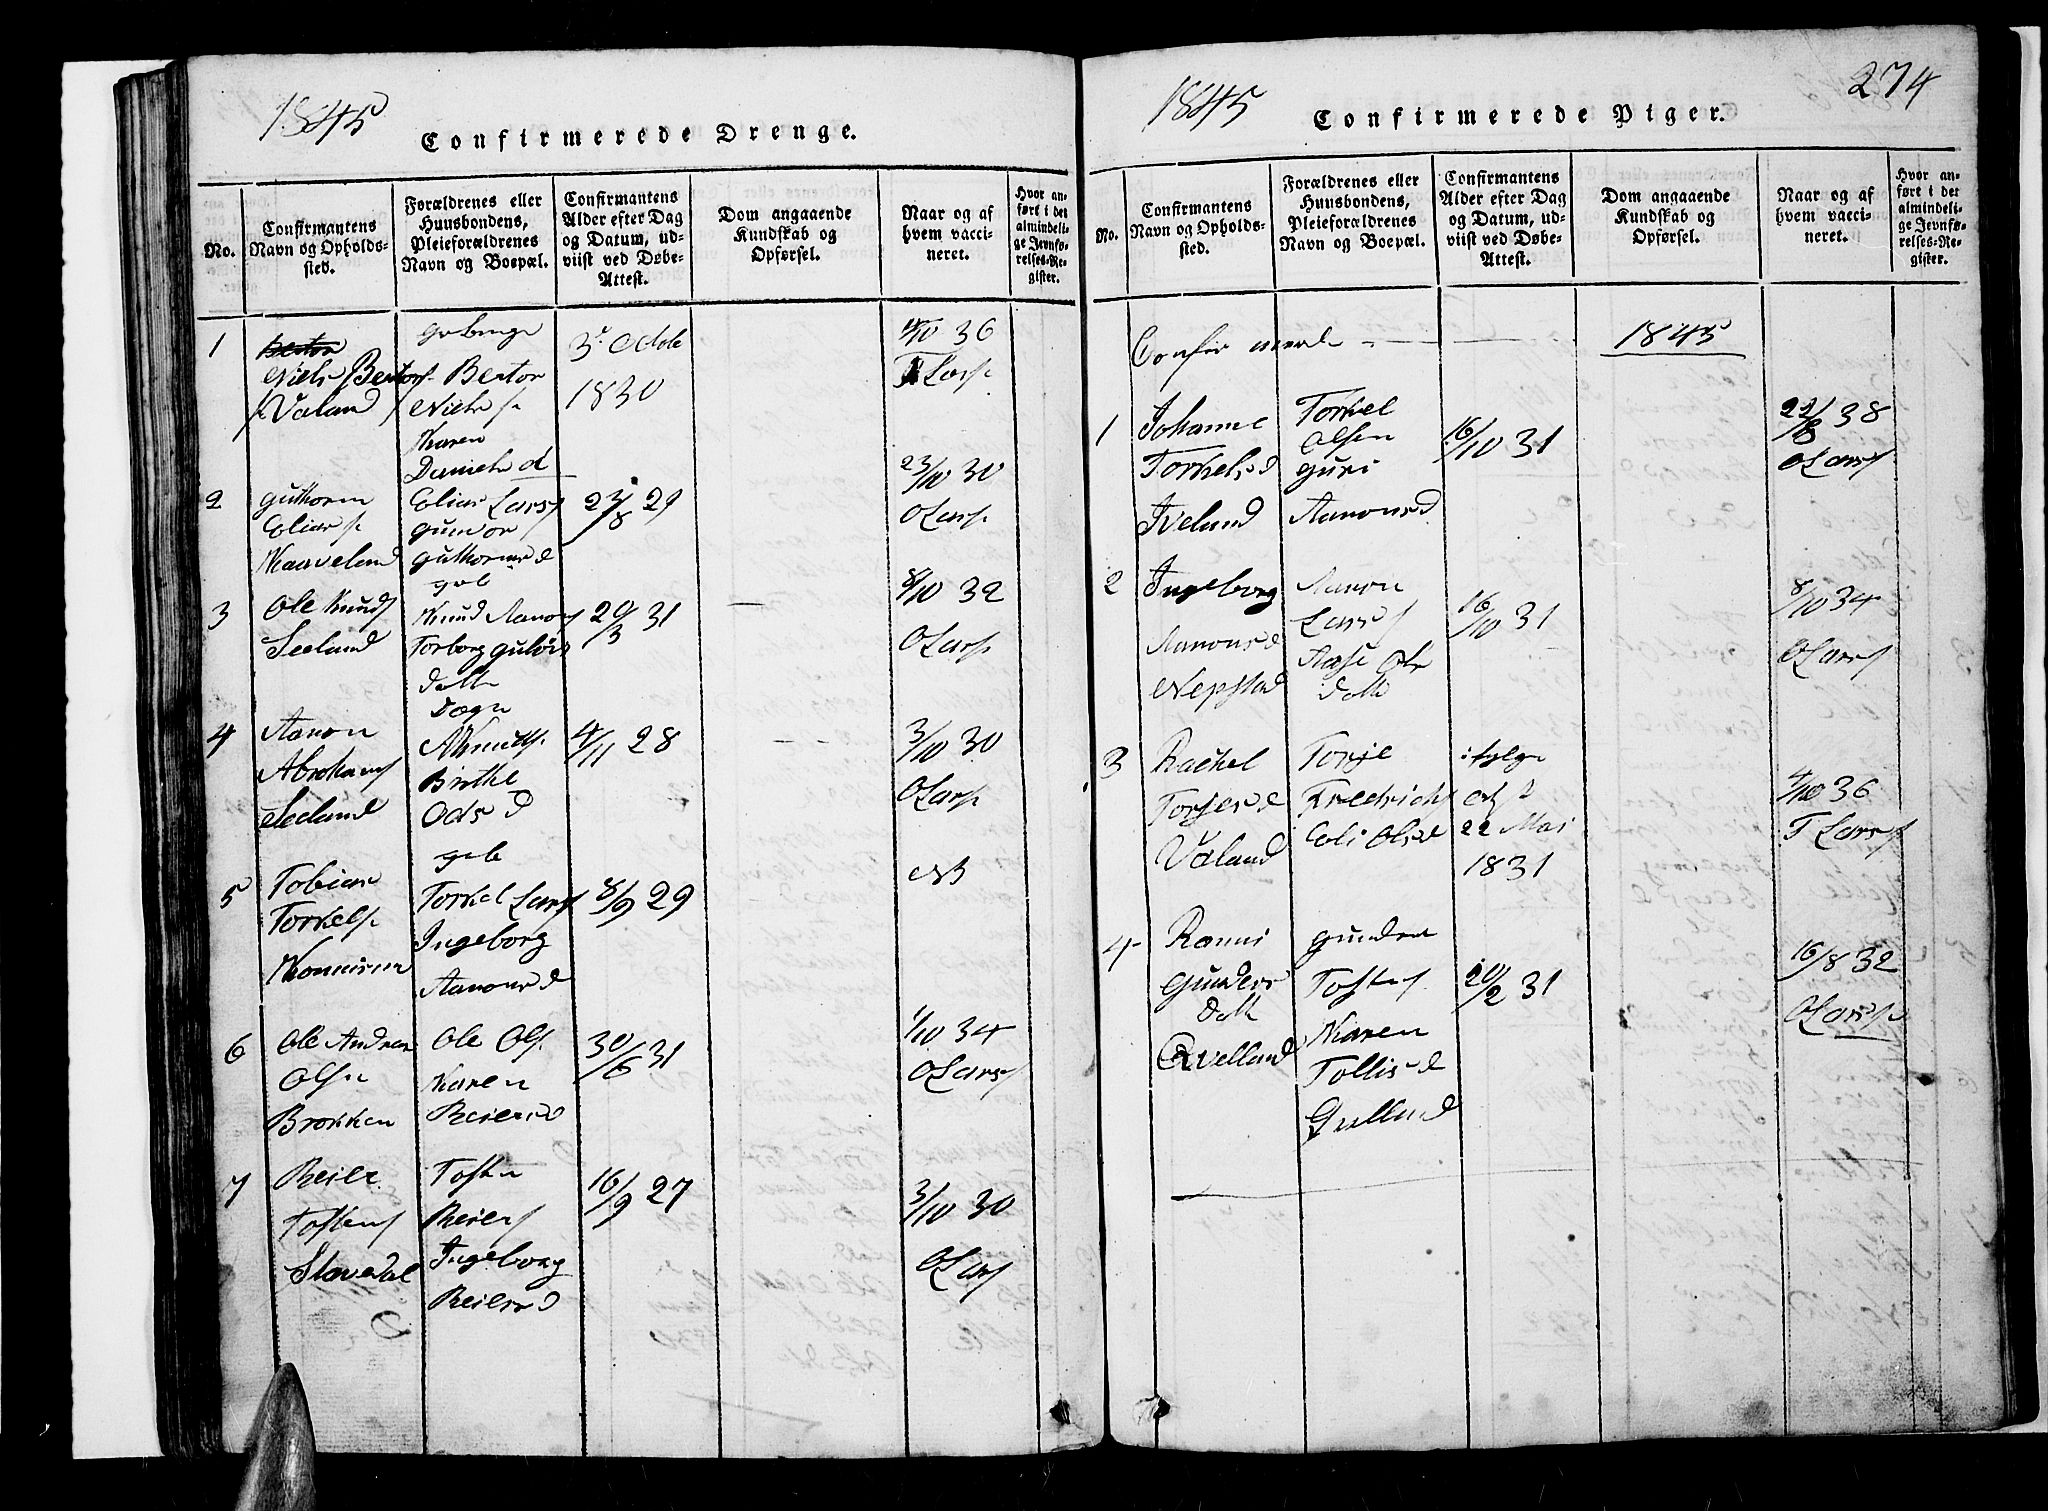 1845
Confirmerede Drenge.
No.
Confirmantens Navn og Opholdssted.
Forældrenes eller Huusbondens, Pleieforældrenes Navn og Boepæl.
Confirmantens Alder efter Dag og Datum, udviist ved Døbe-Attest.
Dom angaaende Kundskab og Opførsel.
Naar og af hvem vaccineret.
Hvor anført i det almindelige Jevnførelses-Register.
1
Niels Berto
Valand
Bertor
Niels
Karen
Daniels d
3
1830
4/10 36
T Lars
2
Guthorm
Elias
Kaaveland
Elias Lars
Gunvor
Guthorms d
23/8 29
23/10 30
O Lars
3
Ole Knuds
Seeland
geb
Knud Aanons
Torborg
Datt
29/3 31
8/10 32
O Lars
4
Aanon
Abrahams
Seeland
A Knuds
Birthe
Ods D
4/11 28
3/10 30
O Lars
5
Tobias
Torkels
geb
Torkel Lars
Ingeborg
Aanons d
8/9 29
NB
6
Ole Andreas
Olsn
Brokken
Ole Ols
Karen
Reiers d
30/6 31
1/10 34
O Lars
7
Reier
Tostens
Slavedal
Tosten
Reiers
Ingeborg
Reiers d
16/9 27
3/10 30
O Lars
1845
274
Confirmerede Piger.
No.
Confirmantens Navn og Opholdssted.
Forældrenes eller Huusbondens, Pleieforældrenes Navn og Boepæl.
Confirmantens Alder efter Dag og Datum, udviist ved Døbe-Attest.
Dom angaaende Kundskab og Opførsel.
Naar og af hvem vaccineret.
Hvor anført i det almindelige Jevnførelses-Register.
Confirmerede 1845
1
Johanne
Torkels d
Iveland
Torkel
Olsen
Guri
Aanons d
16/10 31
22/8 38
O Lars
2
Ingeborg
Aanons d
Nepstad
Aanon
Lars
Aase Ols
Datt
16/10 31
8/10 34
O Lars
3
Rachel
Torjes d
Valand
Torje
Fredrichs
Eli Ols d
ifølge
22 Mai
1831
4/10 36
T Lars
4
Ranni
Gunders
Datt
Gunder
Tostens
Karen
Tollis d
20/2 31
16/8 32
O Lars